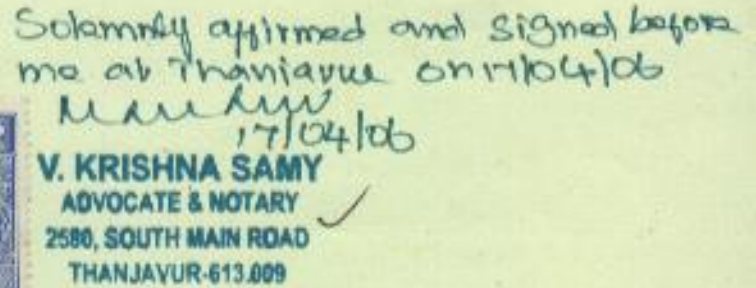 Solemnly affirmed and signed before
me at Thanjavur on 17/04/06
17/04/06
V. KRISHNA SAMY
ADVOCATE & NOTARY
2580, SOUTH MAIN ROAD
THANJAVUR-613.009